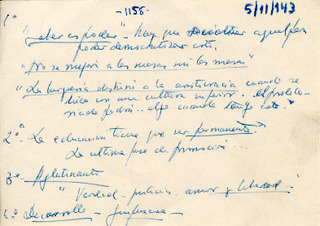 -1156-
5/11/943
1º
"saber es poder" - hay que aquel
poder democratizar este.
"No se mejora a las masas sin las masas"
"La burguesía destruyó a la aristocracia cuando se
una cultura superior. El proleta-
riado podrá algo cuando tenga
2º - La educación tiene que ser permanente.
La última fase de formación...
3º - Aglutinante
"Verdad - justicia, amor y libertad."
4º Desarrollo -